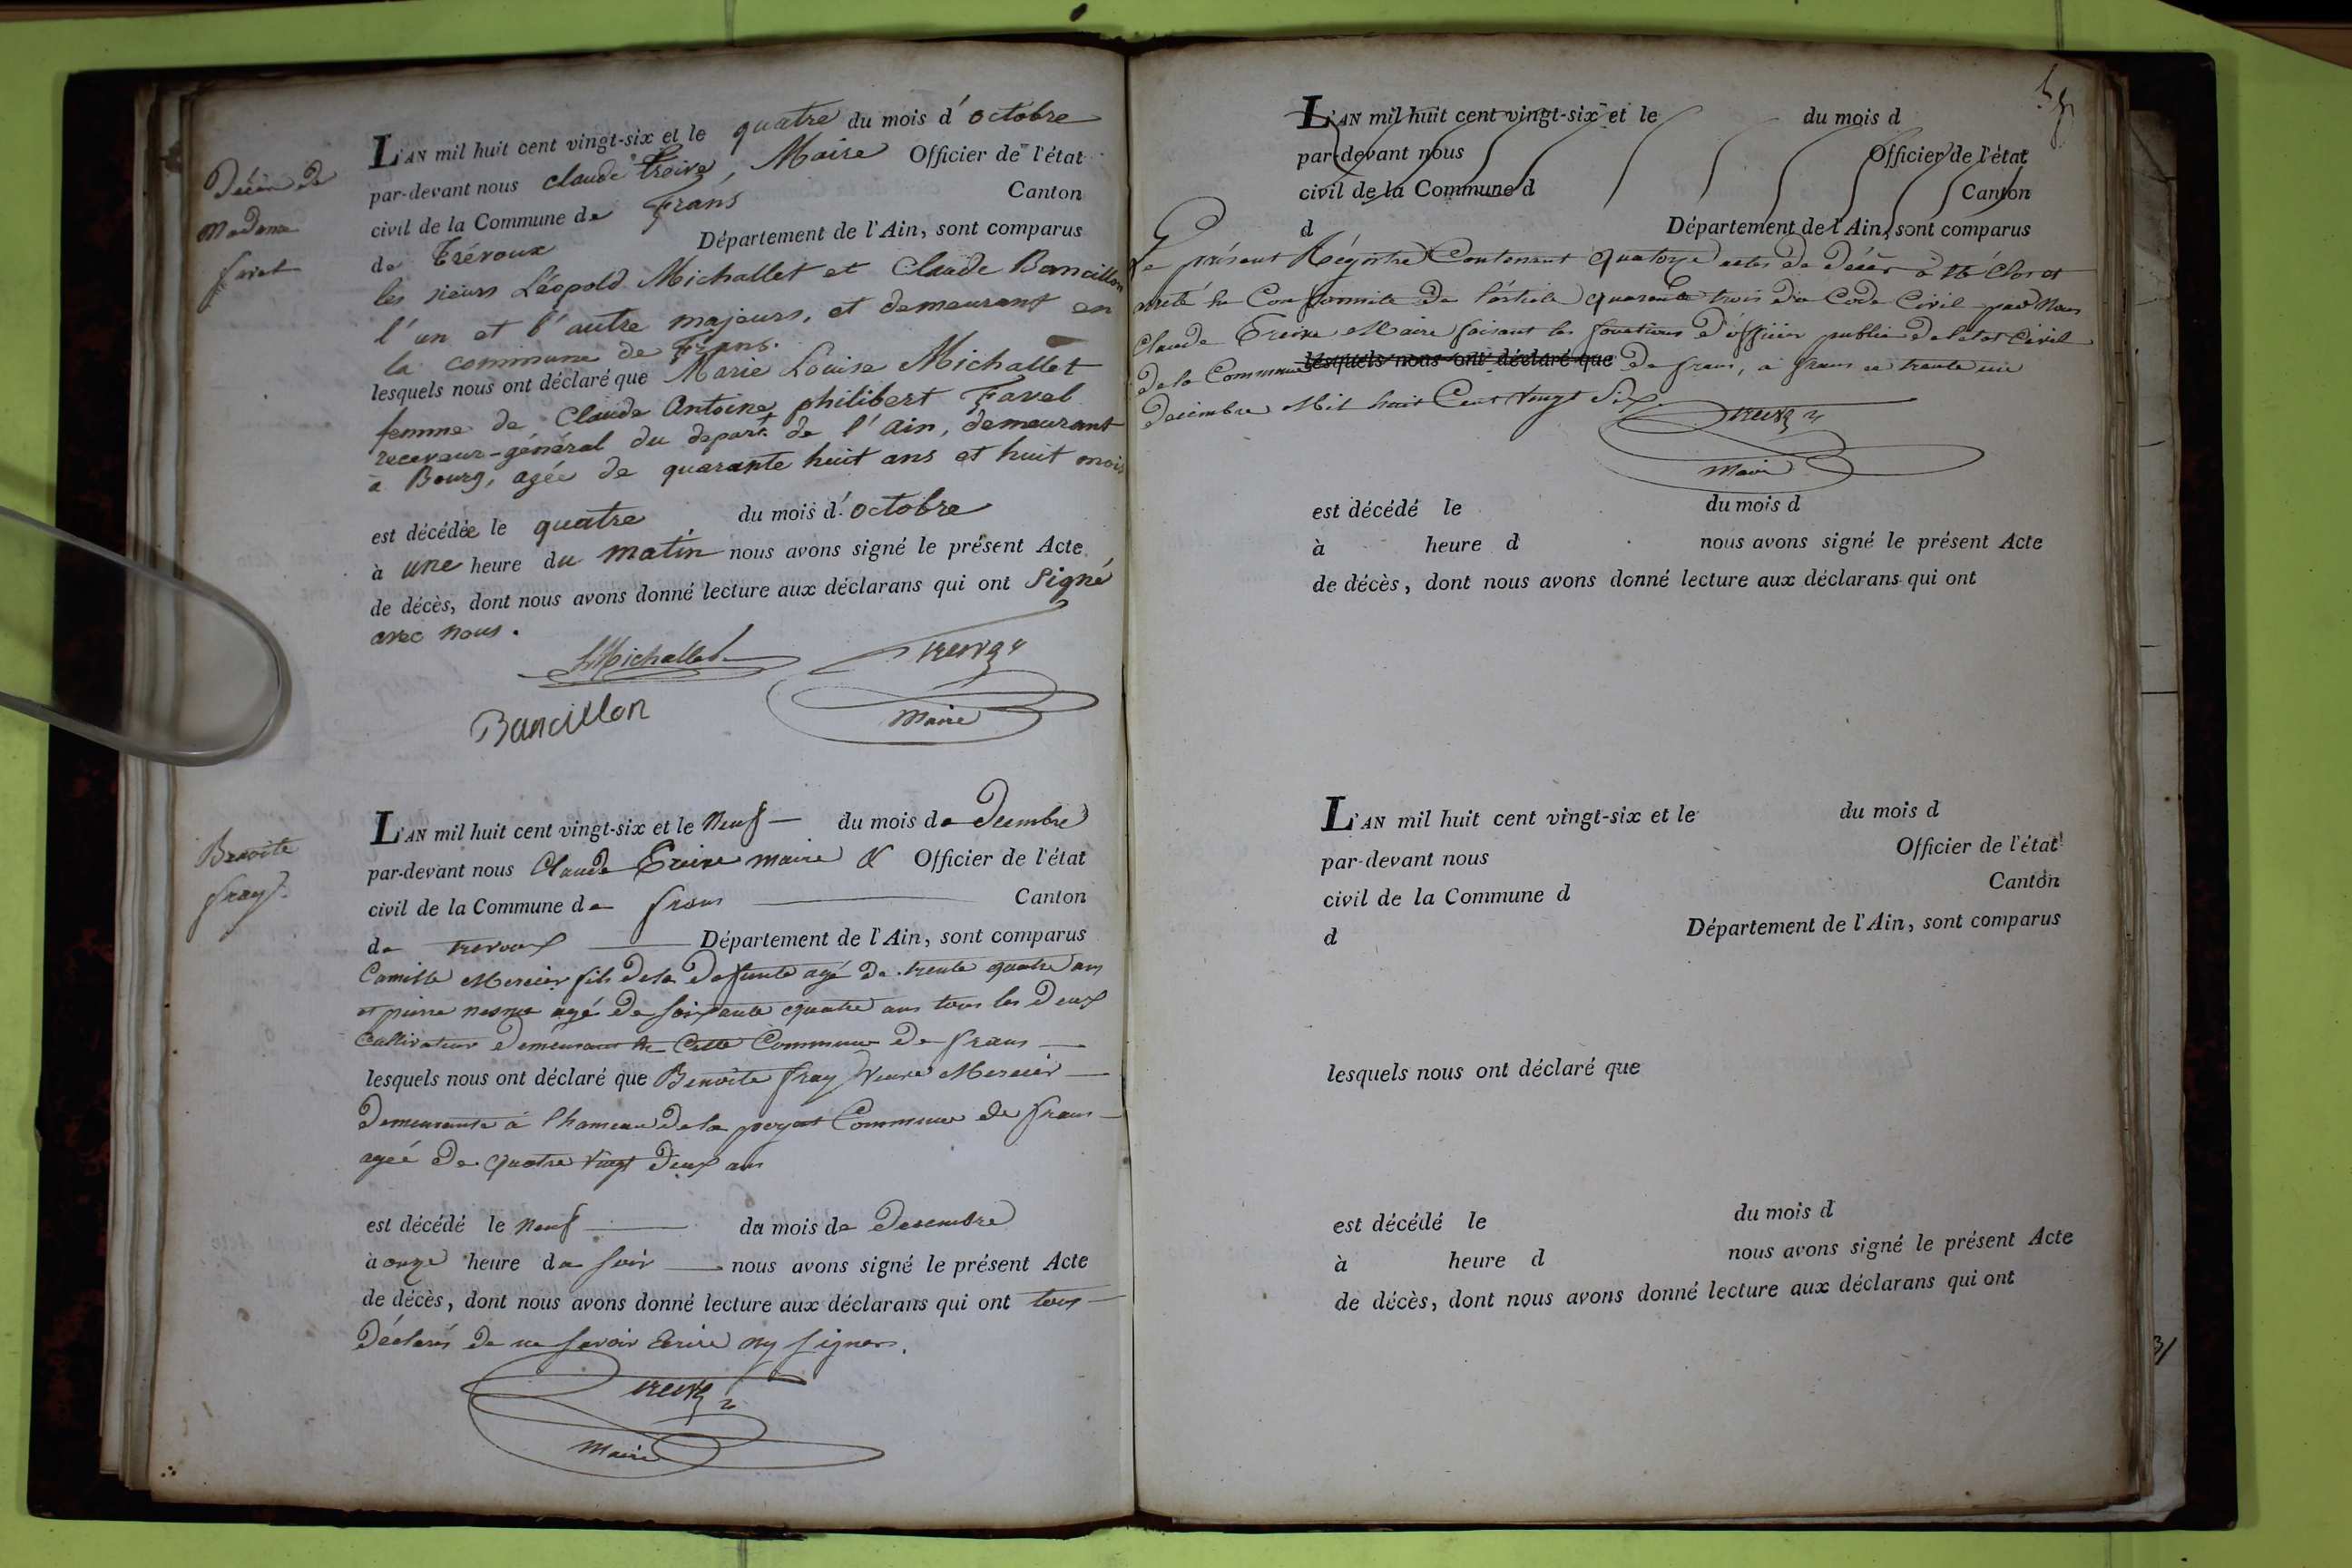 Décès de
Madame
favel
L'AN mil huit cent vingt-six et le quatre du mois d'octobre
par-devant nous claude Treive, Maire Officier de l'état
civil de la Commune de Frans Canton
de Trévoux Département de l'Ain, sont comparus
les sieurs Léopold Michallet et Claude Bancillon
l'un et l'autre majeurs, et demeurant en
la commune de Frans.
lesquels nous ont déclaré que Marie Louise Michallet
femme de Claude Antoine philibert Favel
receveur-général du départ.t de l'Ain, demeurant
à Bourg, agée de quarante huit ans et huit mois
est décédée le quatre du mois d'octobre
à une heure du matin nous avons signé le présent Acte
de décès, dont nous avons donné lecture aux déclarans qui ont signé
avec nous.
LMichallet
Treive
Bancillon
Maire
Benoite
fray
L'AN mil huit cent vingt-six et le Neuf du mois de Decembre
par-devant nous Claude Treive maire & Officier de l'état
civil de la Commune de frans Canton
de trevoux Département de l'Ain, sont comparus
Camille Mercier fils de la Defunte agé de trente quatre ans
et pierre nesme agé de soixante quatre ans tous les Deux
Cultivateur Demeurant en Cette Commune de frans
lesquels nous ont déclaré que Benoite fray Veuve Mercier
Demeurante à l'hameau de la Commune de frans
agéé de quatre vingt Deux ans
est décédé le Neuf du mois de Decembre
à onze heure du soir nous avons signé le présent Acte
de décès, dont nous avons donné lecture aux déclarans qui ont tous
Déclarés de ne savoir Ecrire ny signer.
Treive
Maire
L'AN mil huit cent vingt-six et le du mois d
par-devant nous Officier de l'état
civil de la Commune d Canton
d Département de l'Ain, sont comparus
Le présent Régistre Contenant quatorze actes de Décès à été Clos et
arrêté en Conformité de l'article quarante trois du Code Civil par Nous
Claude Treive Maire faisant les fonctions d'officier public de l'etat Civil
de la Commune lesquels nous ont déclaré que de frans, à frans ce trente un
Decembre Mil huit Cent vingt Six.
Treive
Maire
est décédé le du mois d
à heure d nous avons signé le présent Acte
de décès, dont nous avons donné lecture aux déclarans qui ont
L'AN mil huit cent vingt-six et le du mois d
par-devant nous Officier de l'état
civil de la Commune d Canton
d Département de l'Ain, sont comparus
lesquels nous ont déclaré que
est décédé le du mois d
à heure d nous avons signé le présent Acte
de décès, dont nous avons donné lecture aux déclarans qui ont